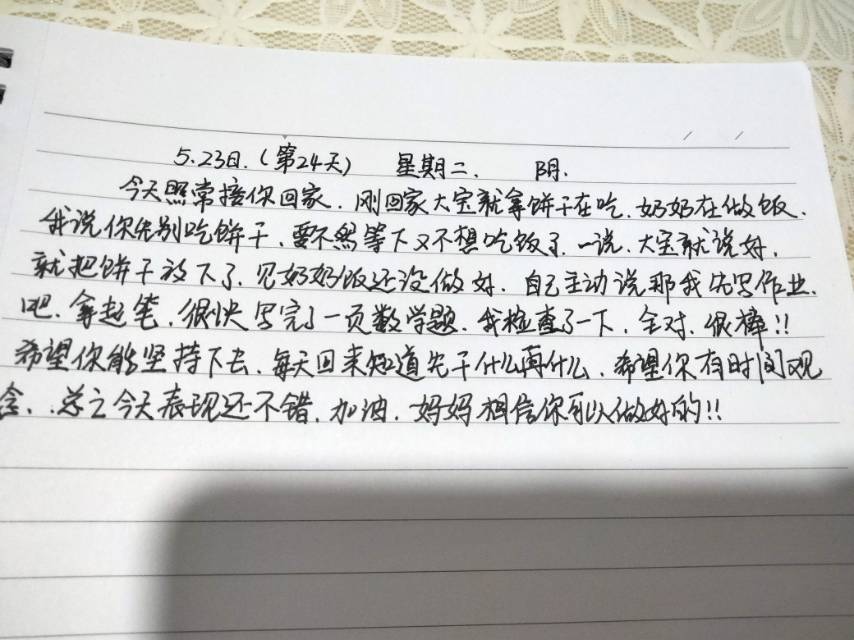 5.23日.(第24天) 星期二. 阴.
今天照常接你回家.刚回家大宝就拿饼干在吃.奶奶在做饭.
我说你先别吃饼干,要不然等下又不想吃饭了.一说.大宝就说好.
就把饼干放下了.见奶奶饭还没做好.自己主动说那我先写作业.
吧.拿起笔.很快写完了一页数学题.我检查了一下.全对.很棒!!
希望你能坚持下去.每天回来知道先干什么再什么.希望你有时间观
念..总之今天表现还不错.加油.妈妈相信你可以做好的!!